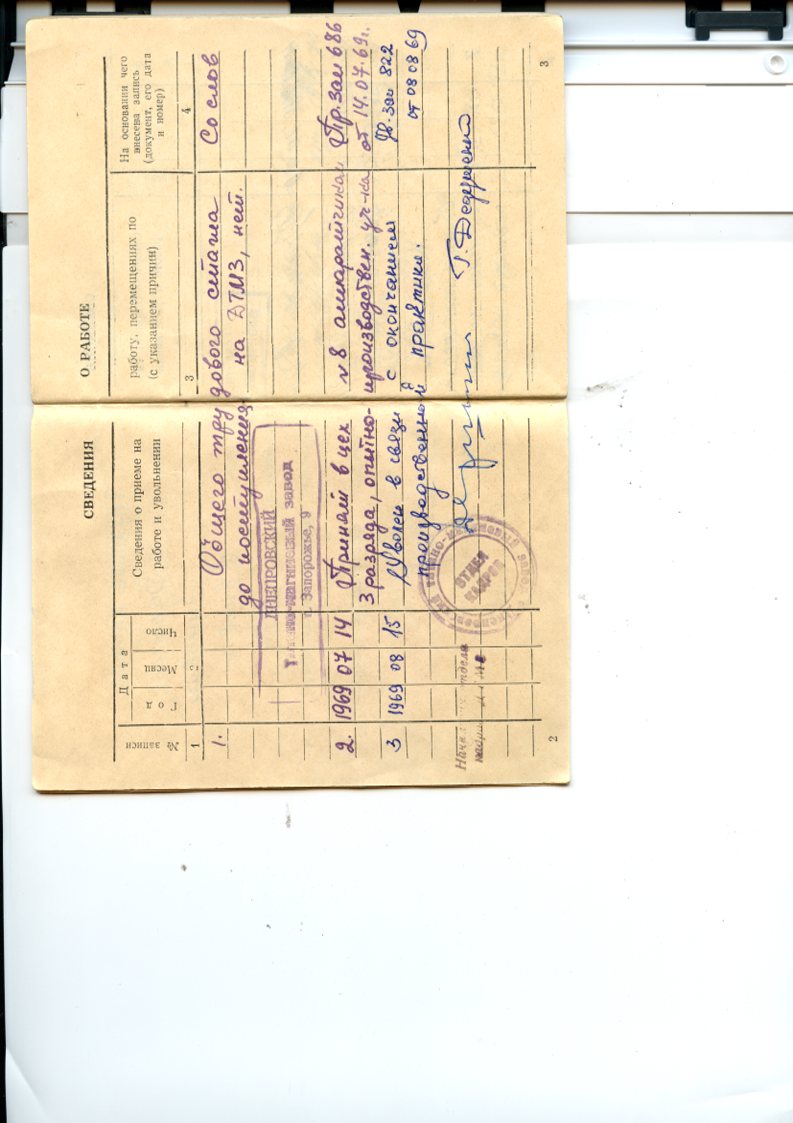 СВЕДЕНИЯ О РАБОТЕ
№ записи
Дата
Год
Месяц
Число
Сведения о приеме на работу, перемещениях по
работе и увольнении (с указанием причин)
На основании чего
внесена запись
(документ, его дата
и номер)
1 2 3 4
1. Общего трудового стажа Со слов
до поступления на ДТМЗ, нет.
ДНЕПРОВСКИЙ
Титано-магниевый завод
г. Запорожье, 9
2. 1969 07 14 Принят в цех №8 аппаратчиком Пр. зам 686
3 разряда, опытно-производствен. уч-ка от 14.07.69г.
3 1969 08 15 Уволен в связи с окончанием Пр. зам 822
производственной практики. от 08 08 69
Начальник отдела
кадров ДТМЗ
ОТДЕЛ
КАДРОВ
2
3